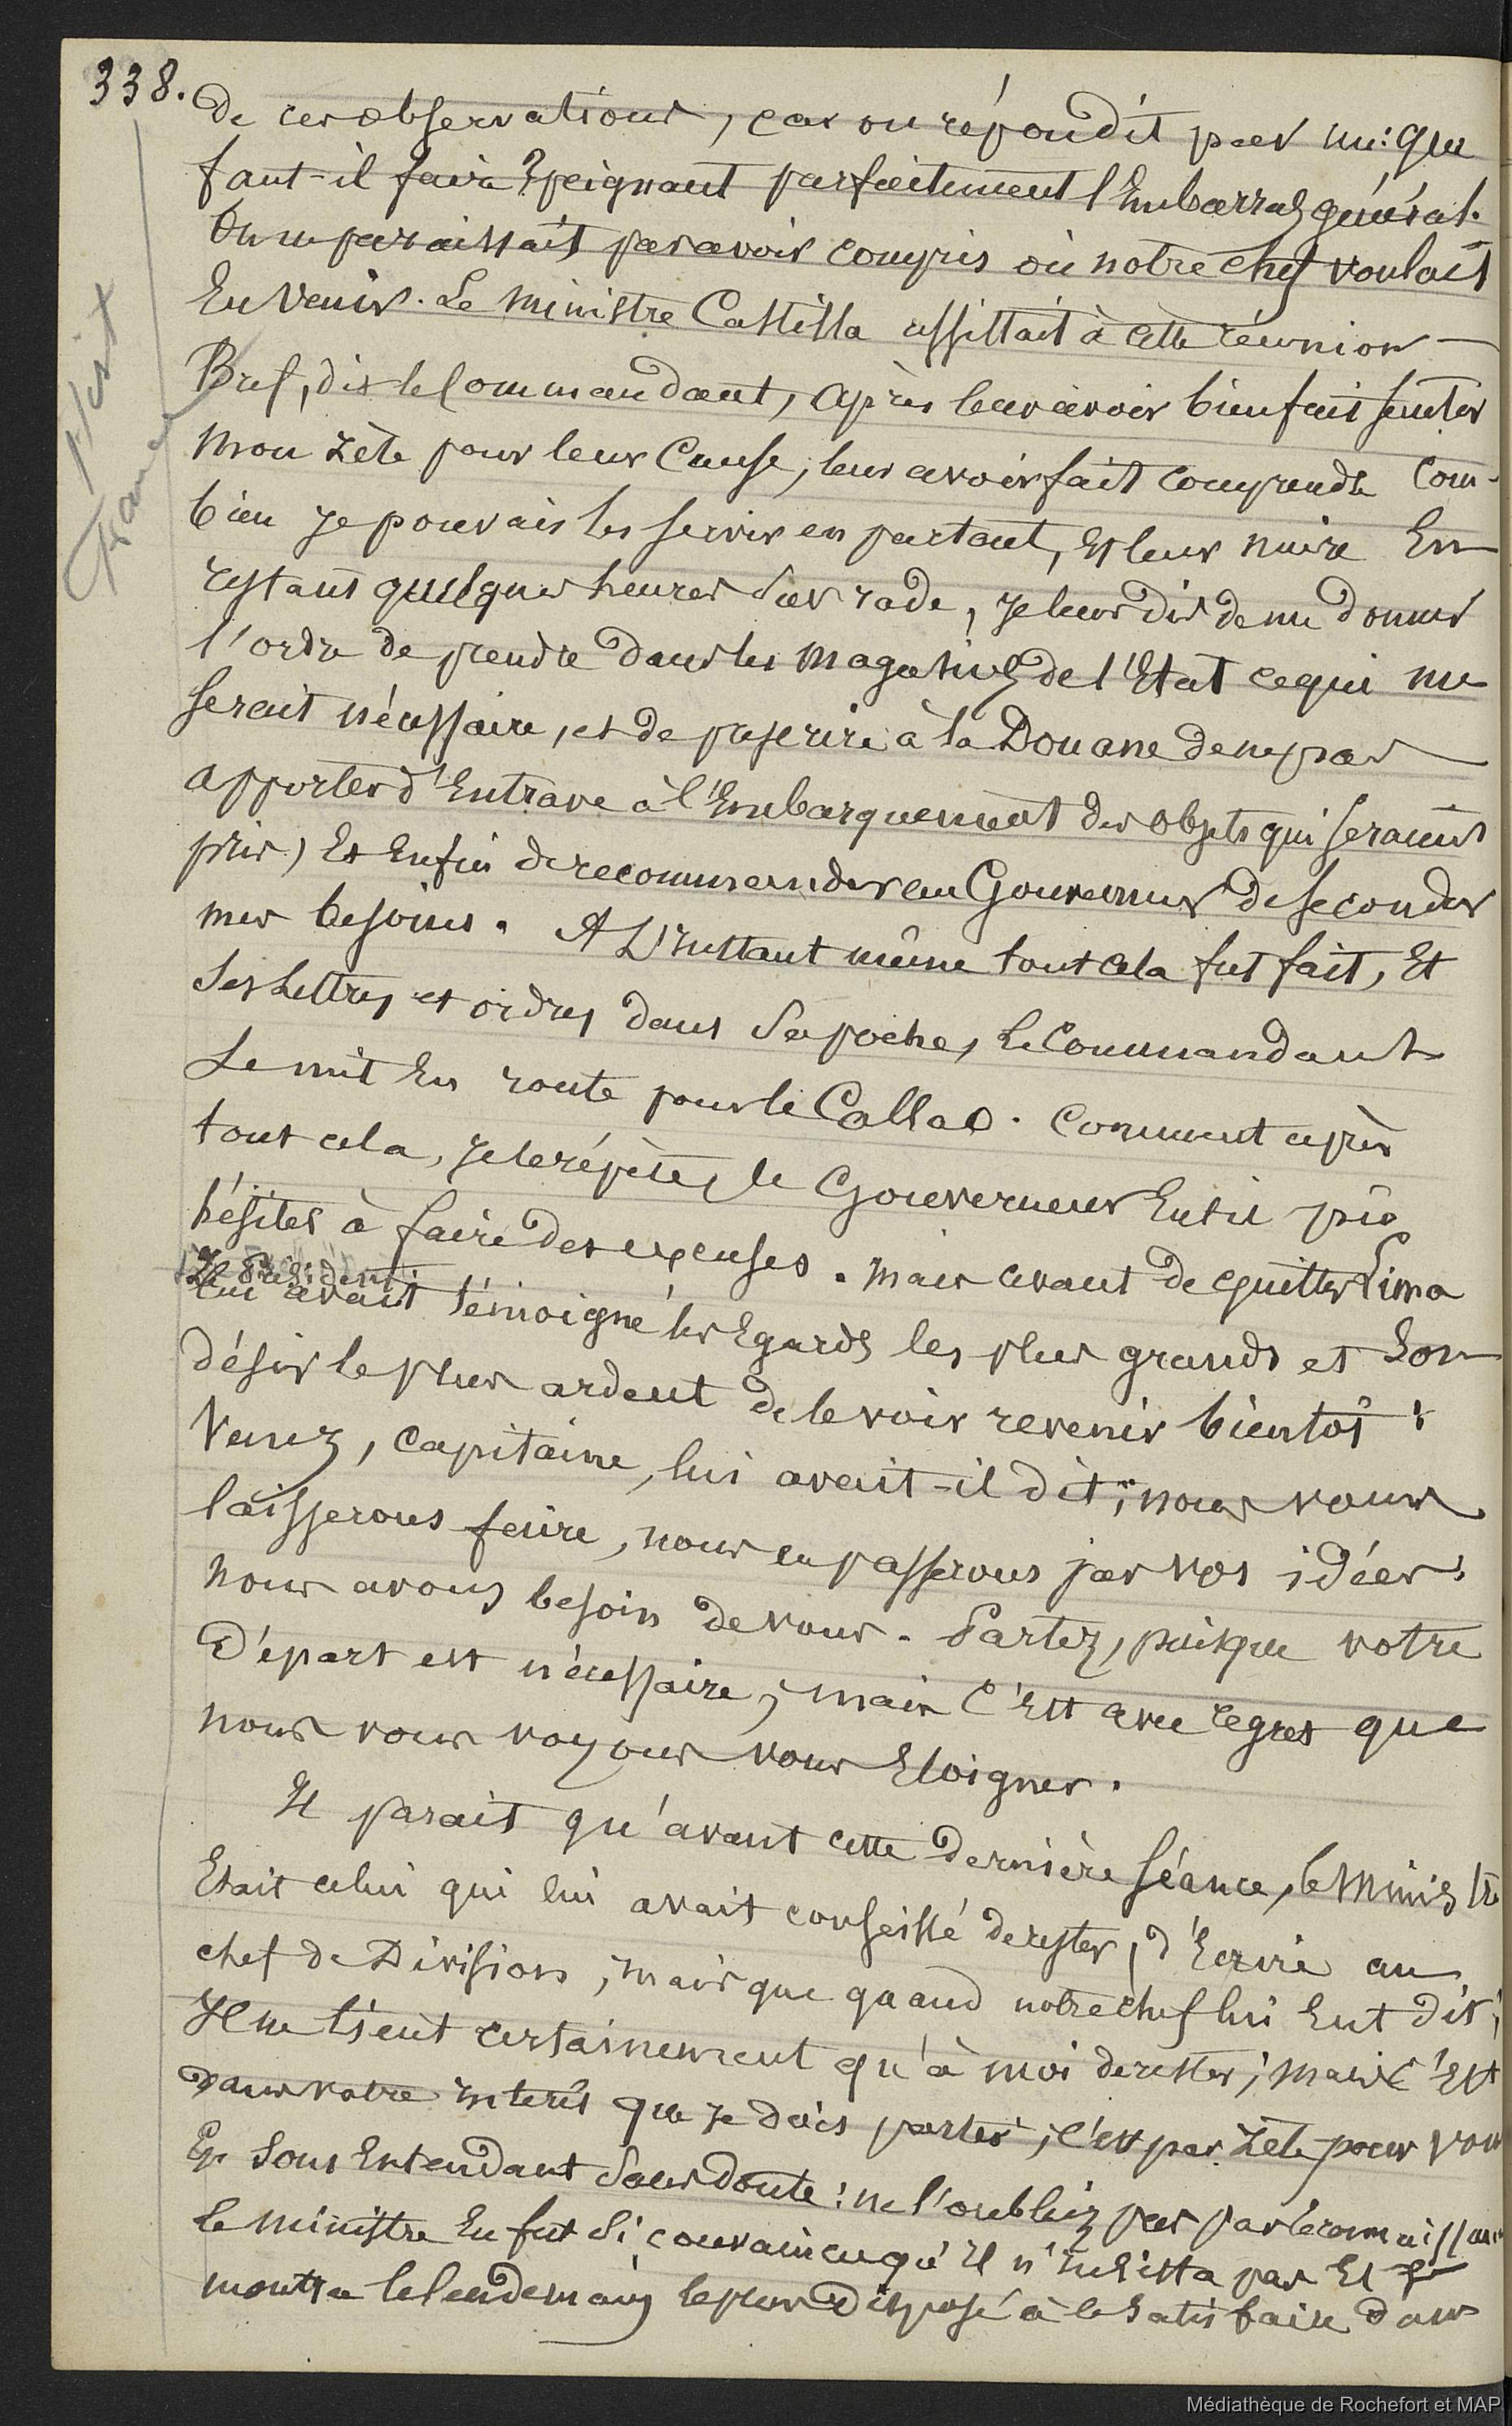 338.
de ces observations, car on répondit par un: que
faut-il faire? peignant parfaitement l'Embarras général.
On ne paraissait pas avoir compris où notre chef voulait
En venir. Le Ministre Castilla assistait à cette réunion —
Bref, dit le Commandant, après leur avoir bien fait sentir
mon zèle pour leur Cause, leur avoir fait comprendre Com-
bien je pouvais les servir en partant, Et leur nuire En
restant quelques heures sur rade, je leur dis de me donner
l'ordre de prendre dans les magasins de l'Etat ce qui me
serait nécessaire, et de prescrire à la Douane de ne pas
apporter d'Entrave à l'Embarquement des objets qui seraient
pris, Et Enfin de recommander au Gouverneur de seconder
mes besoins. A L'instant même tout cela fut fait, Et
Ses Lettres et ordres dans Sa poche, Le Commandant
Se mit En route pour le Callao. Comment après
tout cela, je le répète, le Gouverneur Eut-il pu
hésiter à faire des excuses. Mais avant de quitter Lima
Le Président
lui avait témoigné les Egards les plus grands et Son
désir le plus ardent de le voir revenir bientôt:
Venez, Capitaine, lui avait-il dit; nous vous
laisserons faire, nous en passerons par vos idées,
nous avons besoin de vous. Partez, puisque votre
Départ est nécessaire; mais C'Est avec regret que
nous vous voyons vous Eloigner.
Il parait qu'avant cette dernière Séance, le Ministre
Etait celui qui lui avait conseillé de rester, d'Ecrire au
chef de Division; mais que quand notre chef lui Eut dit;
Il ne tient certainement qu'à moi de rester; mais C'Est
dans votre intérêt que je dois partir; C'est par zèle pour vous
En Sous Entendant Sans doute: ne l'oubliez pas par reconnaissance
le Ministre En fut Si convaincu qu'Il n'insista pas Et se
montra le lendemain le plus disposé à le Satisfaire dans
Médiathèque de Rochefort et MAP